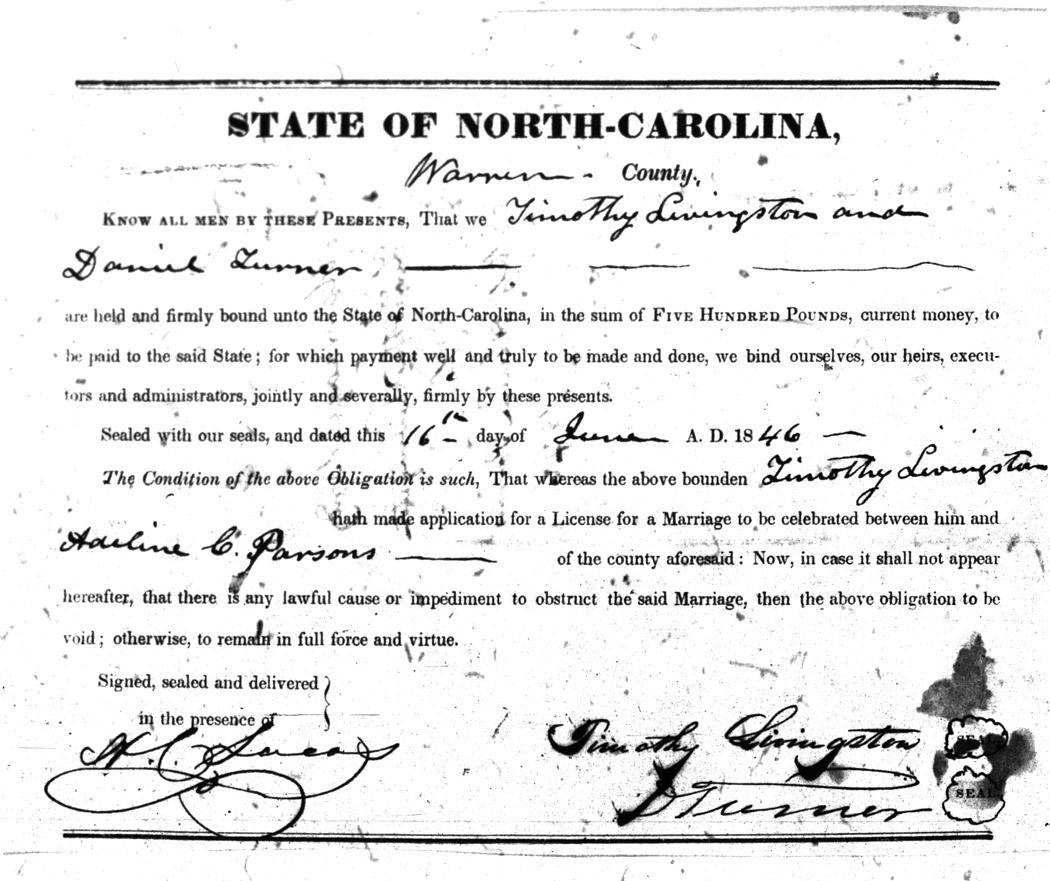 STATE OF NORTH-CAROLINA,
Warren County,
KNOW ALL MEN BY THESE PRESENTS, That we Timothy Livingston and
Daniel Turner
are held and firmly bound unto the State of North-Carolina, in the sum of FIVE HUNDRED POUNDS, current money, to
be paid to the said State; for which payment well and truly to be made and done, we bind ourselves, our heirs, execu-
tors and administrators, jointly and severally, firmly by these presents.
Sealed with our seals, and dated this 16th day of June A. D. 1846
The Condition of the above Obligation is such, That whereas the above bounden Timothy Livingston
hath made application for a License for a Marriage to be celebrated between him and
Adeline C. Parsons of the county aforesaid: Now, in case it shall not appear
hereafter, that there is any lawful cause or impediment to obstruct the said Marriage, then the above obligation to be
void; otherwise, to remain in full force and virtue.
Signed, sealed and delivered
in the presence of
Timothy Livingston SEAL
D Turner SEAL